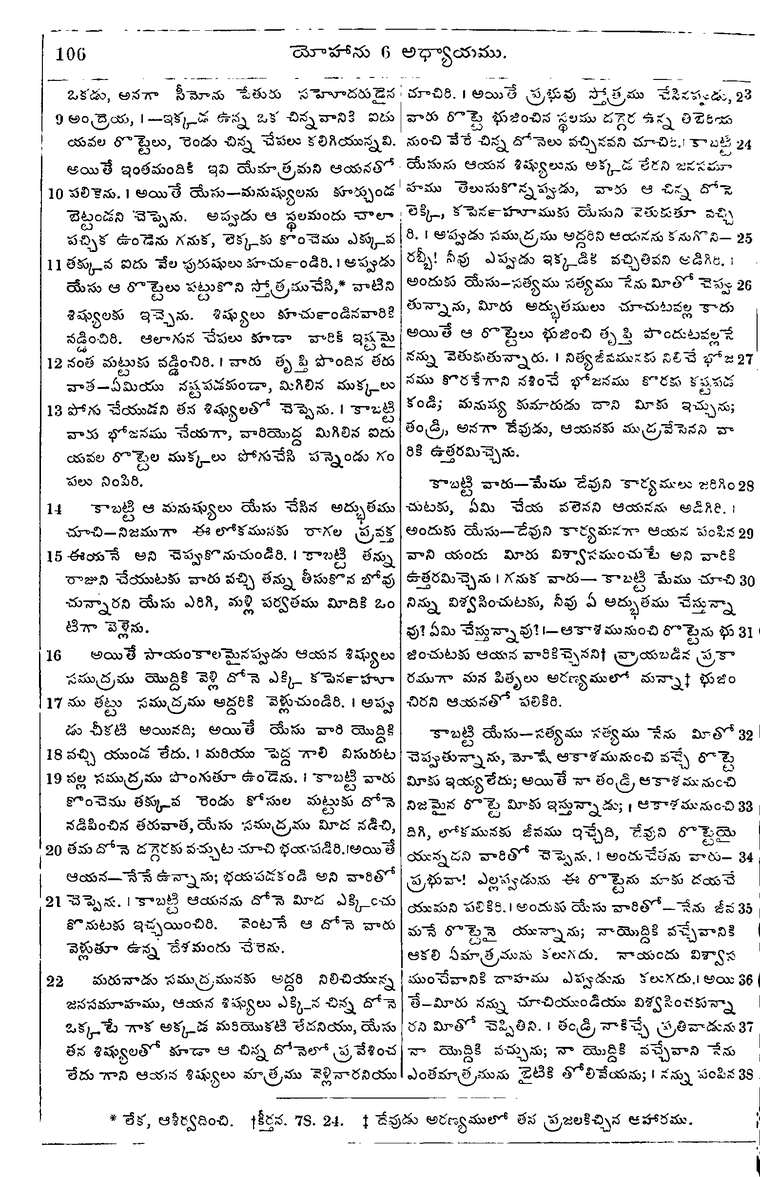 106
యోహాను 6 అధ్యాయము.
ఒకడు, అనగా సీమోను పేతురు సహోదరుడైన
9 అంద్రెయ, । —ఇక్కడ ఉన్న ఒక చిన్నవానికి ఐదు
యవల రొట్టెలు, రెండు చిన్న చేపలు కలిగియున్నవి.
అయితే ఇంతమందికి ఇవి యేమాత్రమని ఆయనతో
10 పలికెను. । అయితే యేసు—మనుష్యులను కూర్చుండ
బెట్టండని చెప్పెను. అప్పుడు ఆ స్థలమందు చాలా
పచ్చిక ఉండెను గనుక, లెక్కకు కొంచెము ఎక్కువ
11 తక్కువ ఐదు వేల పురుషులు కూచుఁండిరి. । అప్పుడు
యేసు ఆ రొట్టెలు పట్టుకొని స్తోత్రముచేసి,* వాటిని
శిష్యులకు ఇచ్చెను. శిష్యులు కూచుఁండినవారికి
వడ్డించిరి. ఆలాగున చేపలు కూడా వారికి ఇష్టమై
12 నంత మట్టుకు వడ్డించిరి. । వారు తృప్తి పొందిన తరు
వాత—ఏమియు నష్టపడకుండా, మిగిలిన ముక్కలు
13 పోగు చేయుడని తన శిష్యులతో చెప్పెను. । కాబట్టి
వారు భోజనము చేయగా, వారియొద్ద మిగిలిన ఐదు
యవల రొట్టెల ముక్కలు పోగుచేసి పన్నెండు గం
పలు నింపిరి.
14 కాబట్టి ఆ మనుష్యులు యేసు చేసిన అద్భుతము
చూచి—నిజముగా ఈ లోకమునకు రాగల ప్రవక్త
15 ఈయనే అని చెప్పుకొనుచుండిరి. । కాబట్టి తన్ను
రాజుని చేయుటకు వారు వచ్చి తన్ను తీసుకొన బోవు
చున్నారని యేసు ఎరిగి, మళ్లి పర్వతము మీదికి ఒం
టిగా వెళ్లెను.
16 అయితే సాయంకాలమైనప్పుడు ఆయన శిష్యులు
సముద్రము యొద్దికి వెళ్లి దోనె ఎక్కి కపెనఁహూ
17 ము తట్టు సముద్రము అద్దరికి వెళ్లుచుండిరి. । అప్పు
డు చీకటి అయినది; అయితే యేసు వారి యొద్దికి
18 వచ్చి యుండ లేదు. । మరియు పెద్ద గాలి విసురుట
19 వల్ల సముద్రము పొంగుతూ ఉండెను. । కాబట్టి వారు
కొంచెము తక్కువ రెండు కోసుల మట్టుకు దోనె
నడిపించిన తరువాత, యేసు సముద్రము మీద నడిచి,
20 తమ దోనె దగ్గెరకు వచ్చుట చూచి భయపడిరి. ।అయితే
ఆయన—నేనే ఉన్నాను; భయపడకండి అని వారితో
21 చెప్పెను. । కాబట్టి ఆయనను దోనె మీద ఎక్కించు
కొనుటకు ఇచ్ఛయించిరి. వెంటనే ఆ దోనె వారు
వెళ్లుతూ ఉన్న దేశమందు చేరెను.
22 మరునాడు సముద్రమునకు అద్దరి నిలిచియున్న
జనసమూహము, ఆయన శిష్యులు ఎక్కిన చిన్న దోనె
ఒక్కటే గాక అక్కడ మరియొకటి లేదనియు, యేసు
తన శిష్యులతో కూడా ఆ చిన్న దోనెలో ప్రవేశించ
లేదు గాని ఆయన శిష్యులు మాత్రము వెళ్లినారనియు
చూచిరి. । అయితే ప్రభువు స్తోత్రము చేసినప్పుడు, 23
వారు రొట్టె భుజించిన స్థలము దగ్గెర ఉన్న తిబెరియ
నుంచి వేరే చిన్న దోనెలు వచ్చినవని చూచిరి. । కాబట్టి 24
యేసును ఆయన శిష్యులును అక్కడ లేరని జనసమూ
హము తెలుసుకొన్నప్పుడు, వారు ఆ చిన్న దోనె
లెక్కి, కపెనఁహూముకు యేసుని వెతుకుతూ వచ్చి
రి. । అప్పుడు సముద్రము అద్దరిని ఆయనను కనుగొని— 25
రబ్బీ! నీవు ఎప్పుడు ఇక్కడికి వచ్చితివని అడిగిరి. ।
అందుకు యేసు—సత్యము సత్యము నేను మీతో చెప్పు 26
తున్నాను, మీరు అద్భుతములు చూచుటవల్ల కాదు
అయితే ఆ రొట్టెలు భుజించి తృప్తి పొందుటవల్లనే
నన్ను వెతుకుతున్నారు. । నిత్యజీవమునకు నిలిచే భోజ 27
నము కొరకేగాని నశించే భోజనము కొరకు కష్టపడ
కండి; మనుష్య కుమారుడు దాని మీకు ఇచ్చును;
తండ్రి, అనగా దేవుడు, ఆయనకు ముద్రవేసెనని వా
రికి ఉత్తరమిచ్చెను.
కాబట్టి వారు—మేము దేవుని కార్యములు జరిగిం 28
చుటకు, ఏమి చేయ వలెనని ఆయనను అడిగిరి. ।
అందుకు యేసు—దేవుని కార్యమనగా ఆయన పంపిన 29
వాని యందు మీరు విశ్వాసముంచుటే అని వారికి
ఉత్తరమిచ్చెను । గనుక వారు— కాబట్టి మేము చూచి 30
నిన్ను విశ్వసించుటకు, నీవు ఏ అద్భుతము చేస్తున్నా
వు? ఏమి చేస్తున్నావు? ।—ఆకాశమునుంచి రొట్టెను భు 31
జించుటకు ఆయన వారికిచ్చెనని† వ్రాయబడిన ప్రకా
రముగా మన పితృలు అరణ్యములో మన్నా‡ భుజిం
చిరని ఆయనతో పలికిరి.
కాబట్టి యేసు—సత్యము సత్యము నేను మీతో 32
చెప్పుతున్నాను, మోషే ఆకాశమునుంచి వచ్చే రొట్టె
మీకు ఇయ్యలేదు; అయితే నా తండ్రి ఆకాశమునుంచి
నిజమైన రొట్టె మీకు ఇస్తున్నాడు; । ఆకాశమునుంచి 33
దిగి, లోకమునకు జీవము ఇచ్చేది, దేవుని రొట్టెయై
యున్నదని వారితో చెప్పెను. । అందుచేతను వారు— 34
ప్రభువా! ఎల్లప్పుడును ఈ రొట్టెను మాకు దయచే
యుమని పలికిరి. । అందుకు యేసు వారితో—నేను జీవ 35
మనే రొట్టెనై యున్నాను; నాయొద్దికి వచ్చేవానికి
ఆకలి ఏమాత్రమును కలుగదు. నాయందు విశ్వాస
ముంచేవానికి దాహము ఎప్పుడును కలుగదు. । అయి 36
తే—మీరు నన్ను చూచియుండియు విశ్వసించకున్నా
రని మీతో చెప్పితిని. । తండ్రి నాకిచ్చే ప్రతివాడును 37
నా యొద్దికి వచ్చును; నా యొద్దికి వచ్చేవాని నేను
ఎంతమాత్రమును బైటికి తోలివేయను; । నన్ను పంపిన 38
* లేక, ఆశీర్వదించి. †కీర్తన. 78. 24. ‡ దేవుడు అరణ్యములో తన ప్రజలకిచ్చిన ఆహారము.